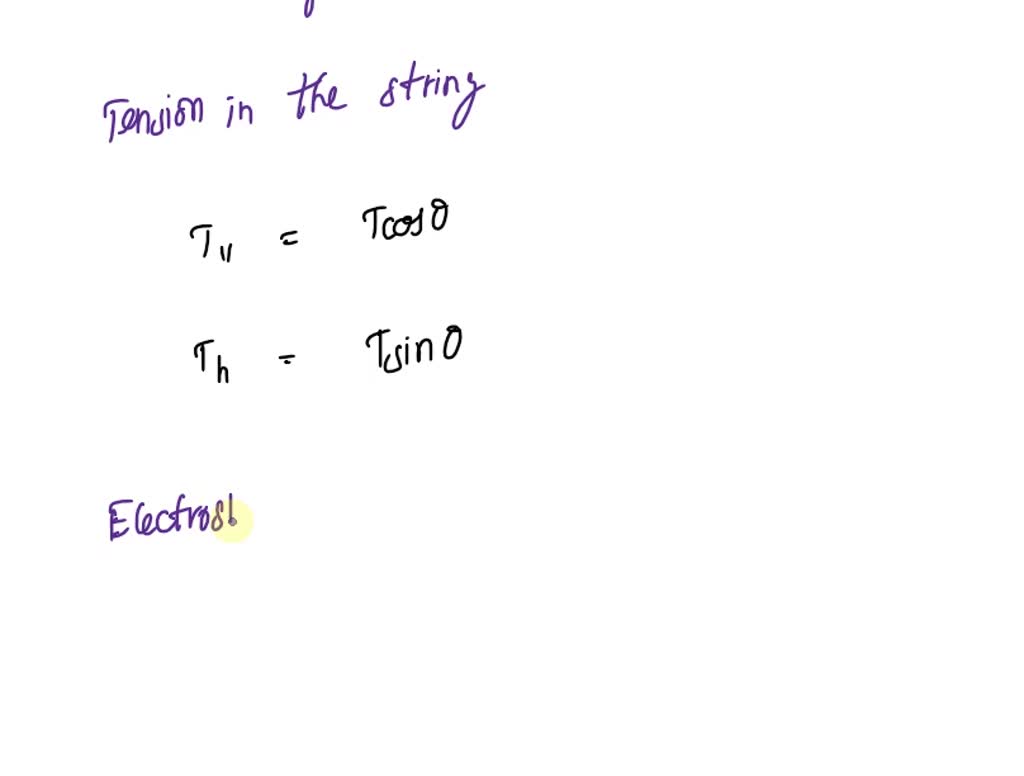 Tension in the string
Tv = Tcosθ
Th = Tsinθ
Electrost